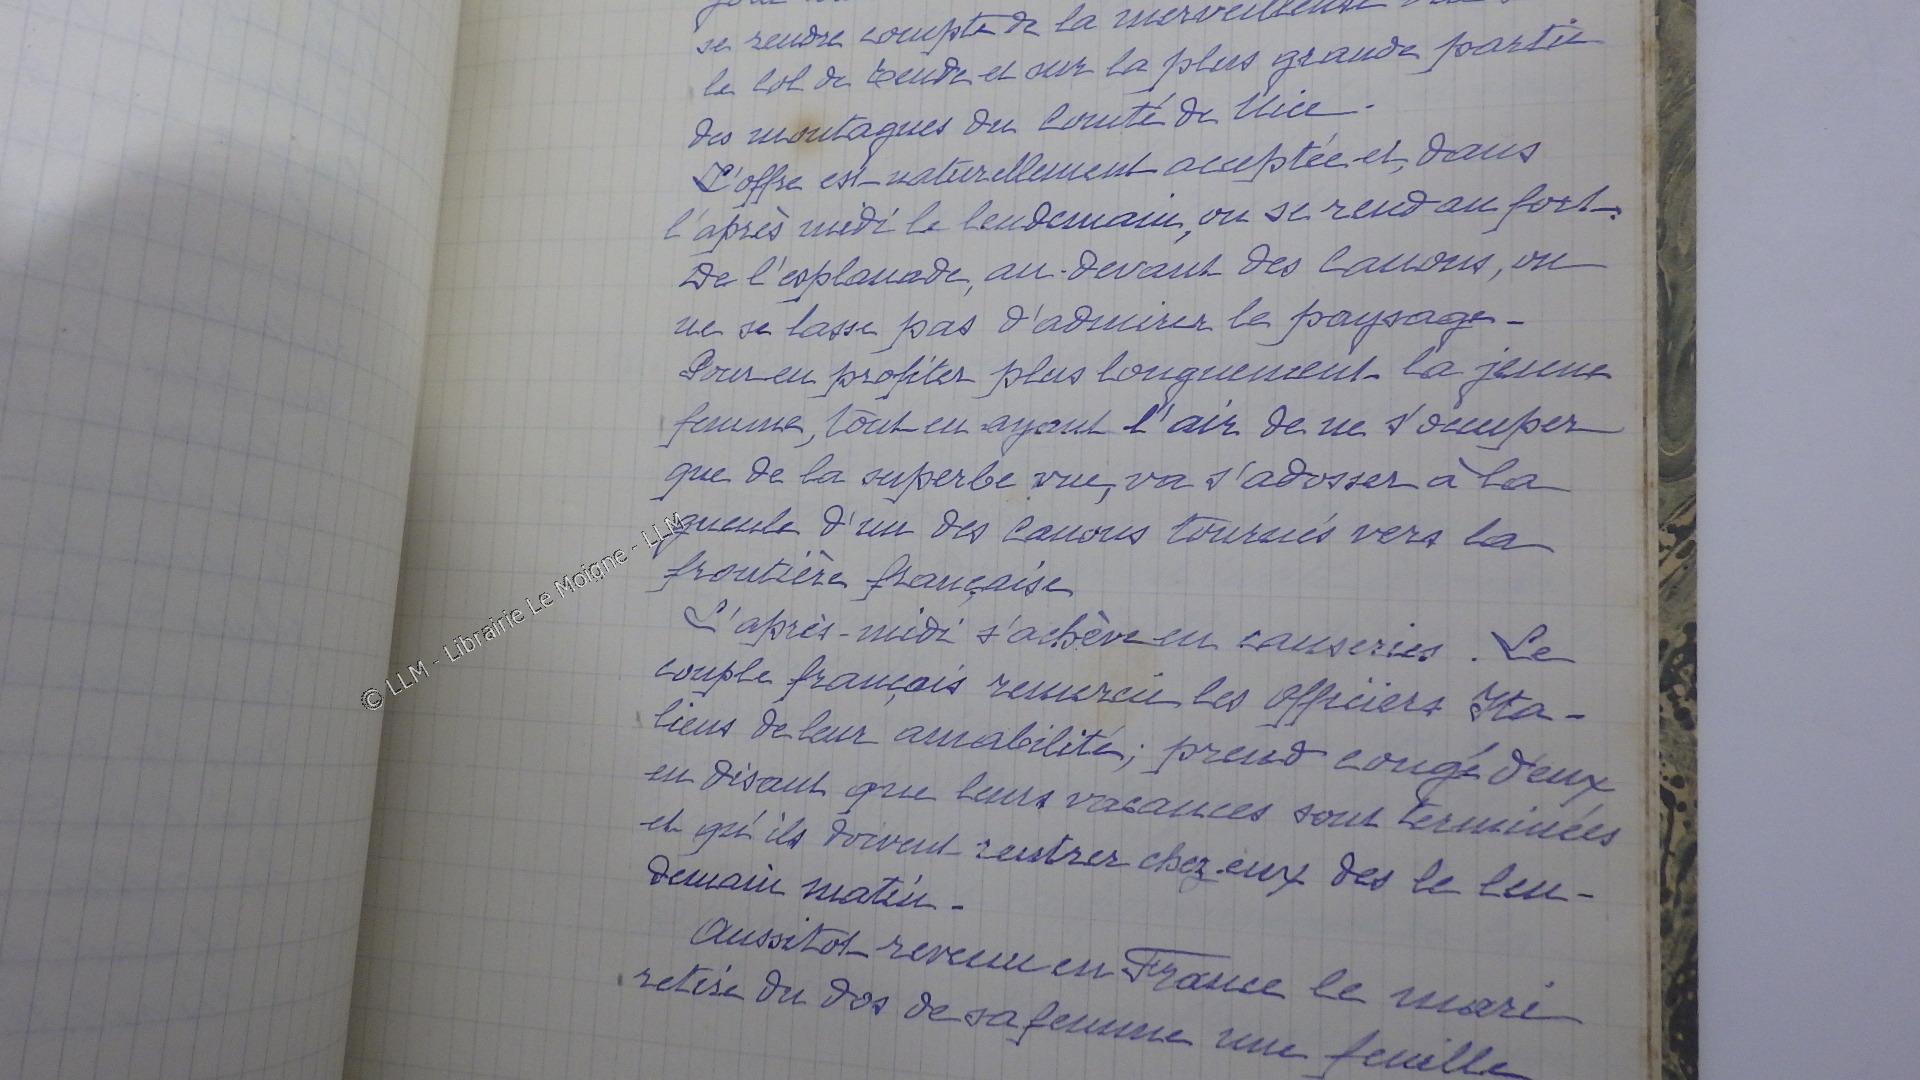 se rendre compte de la merveilleuse
le Col de Tende et sur la plus grande partie
des montagnes du Comté de Nice.
L'offre est naturellement acceptée et, dans
l'après midi le lendemain, on se rend au fort.
De l'esplanade, au-devant des canons, on
ne se lasse pas d'admirer le paysage -
Pour en profiter plus longuement la jeune
femme, tout en ayant l'air de ne s'occuper
que de la superbe vue, va s'adosser à la
gueule d'un des canons tournés vers la
frontière française
L'après-midi s'achève en causeries. Le
couple français remercie les officiers Ita-
liens de leur amabilité; prend congé d'eux
en disant que leurs vacances sont terminées
et qu'ils doivent rentrer chez-eux des le len-
demain matin -
Aussitot revenu en France le mari
retire du dos de sa femme une feuille
© LLM - Librairie Le Moigne - LLM